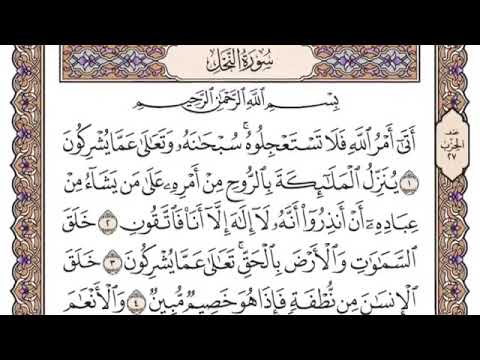 سُورَةُ النَّحْلِ
بِسْمِ اللَّهِ الرَّحْمَٰنِ الرَّحِيمِ
أَتَىٰٓ أَمْرُ اللَّهِ فَلَا تَسْتَعْجِلُوهُ ۚ سُبْحَٰنَهُۥ وَتَعَٰلَىٰ عَمَّا يُشْرِكُونَ
١ يُنَزِّلُ الْمَلَٰٓئِكَةَ بِالرُّوحِ مِنْ أَمْرِهِۦ عَلَىٰ مَن يَشَآءُ مِنْ
عِبَادِهِۦٓ أَنْ أَنذِرُوٓا۟ أَنَّهُۥ لَآ إِلَٰهَ إِلَّآ أَنَا۠ فَاتَّقُونِ ٢ خَلَقَ
السَّمَٰوَٰتِ وَالْأَرْضَ بِالْحَقِّ ۚ تَعَٰلَىٰ عَمَّا يُشْرِكُونَ ٣ خَلَقَ
الْإِنسَٰنَ مِن نُّطْفَةٍ فَإِذَا هُوَ خَصِيمٌ مُّبِينٌ ٤ وَالْأَنْعَٰمَ
عند
الحزب
٢٧